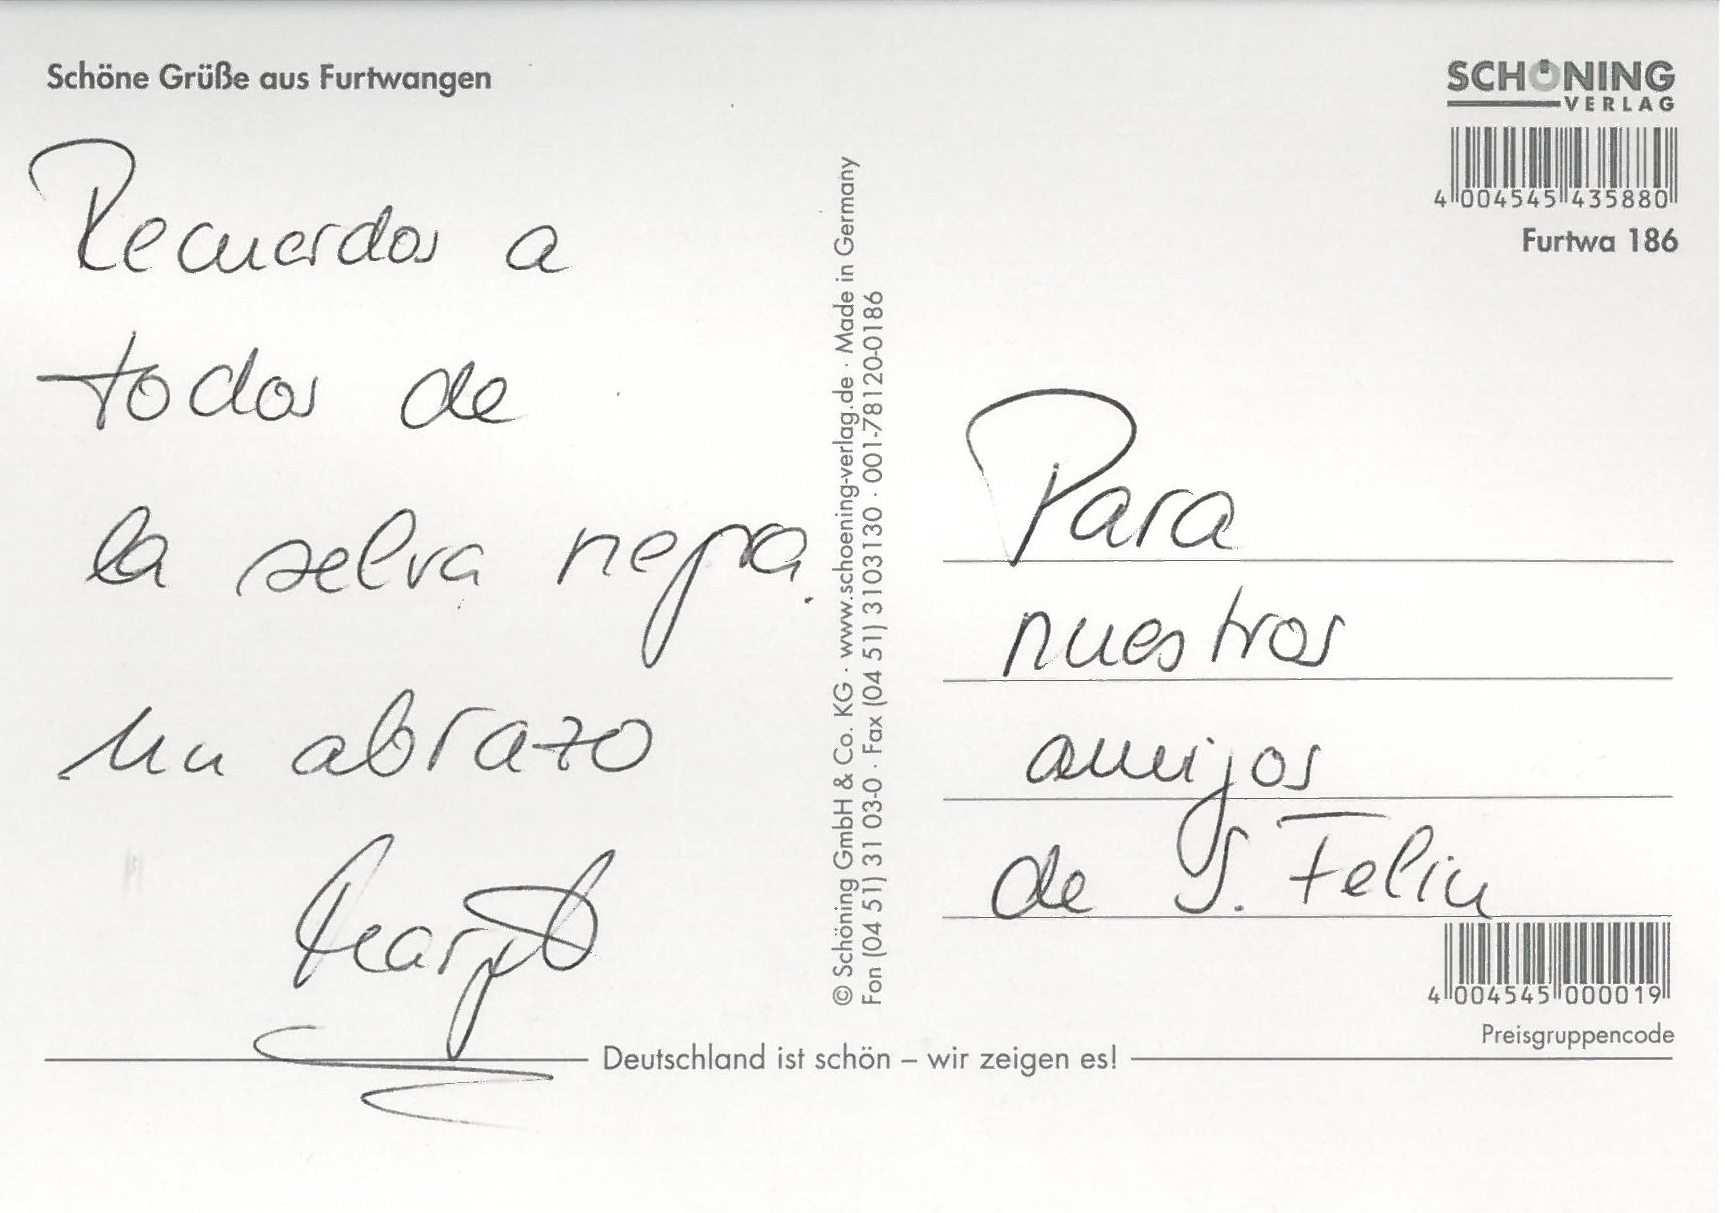 Schöne Grüße aus Furtwangen
Recuerdos a
todos de
la selva negra.
un abrazo
SCHÖNING
VERLAG
4 004545 435880
Furtwa 186
© Schöning GmbH & Co. KG · www.schoening-verlag.de · Made in Germany
Fon (04 51) 31 03-0 · Fax (04 51) 3103130 · 001-78120-0186
Para
nuestros
amigos
de S. Feliu
4 004545 000019
Preisgruppencode
Deutschland ist schön – wir zeigen es!